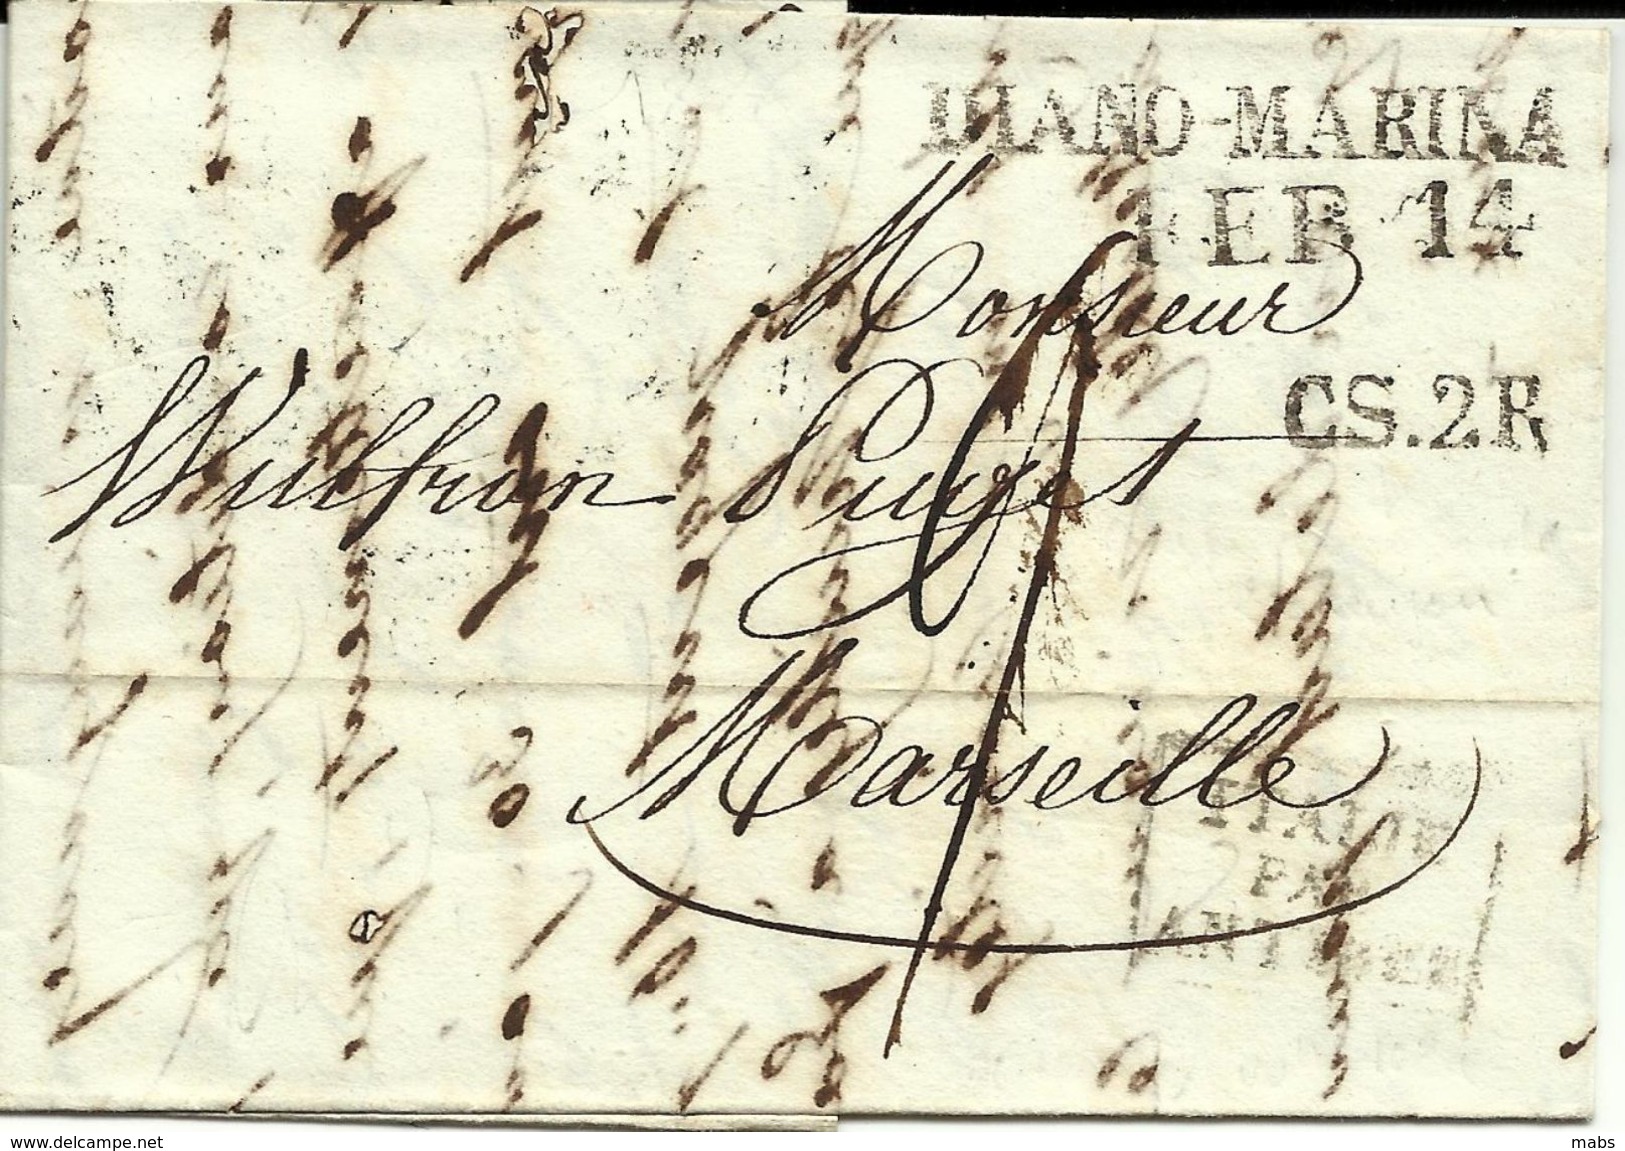 DIANO-MARINA
FEB. 14
Monsieur
CS.2R
Wulfran Puget
Marseille
ITALIE
PAR
ANTIBES
www.delcampe.net
mabs